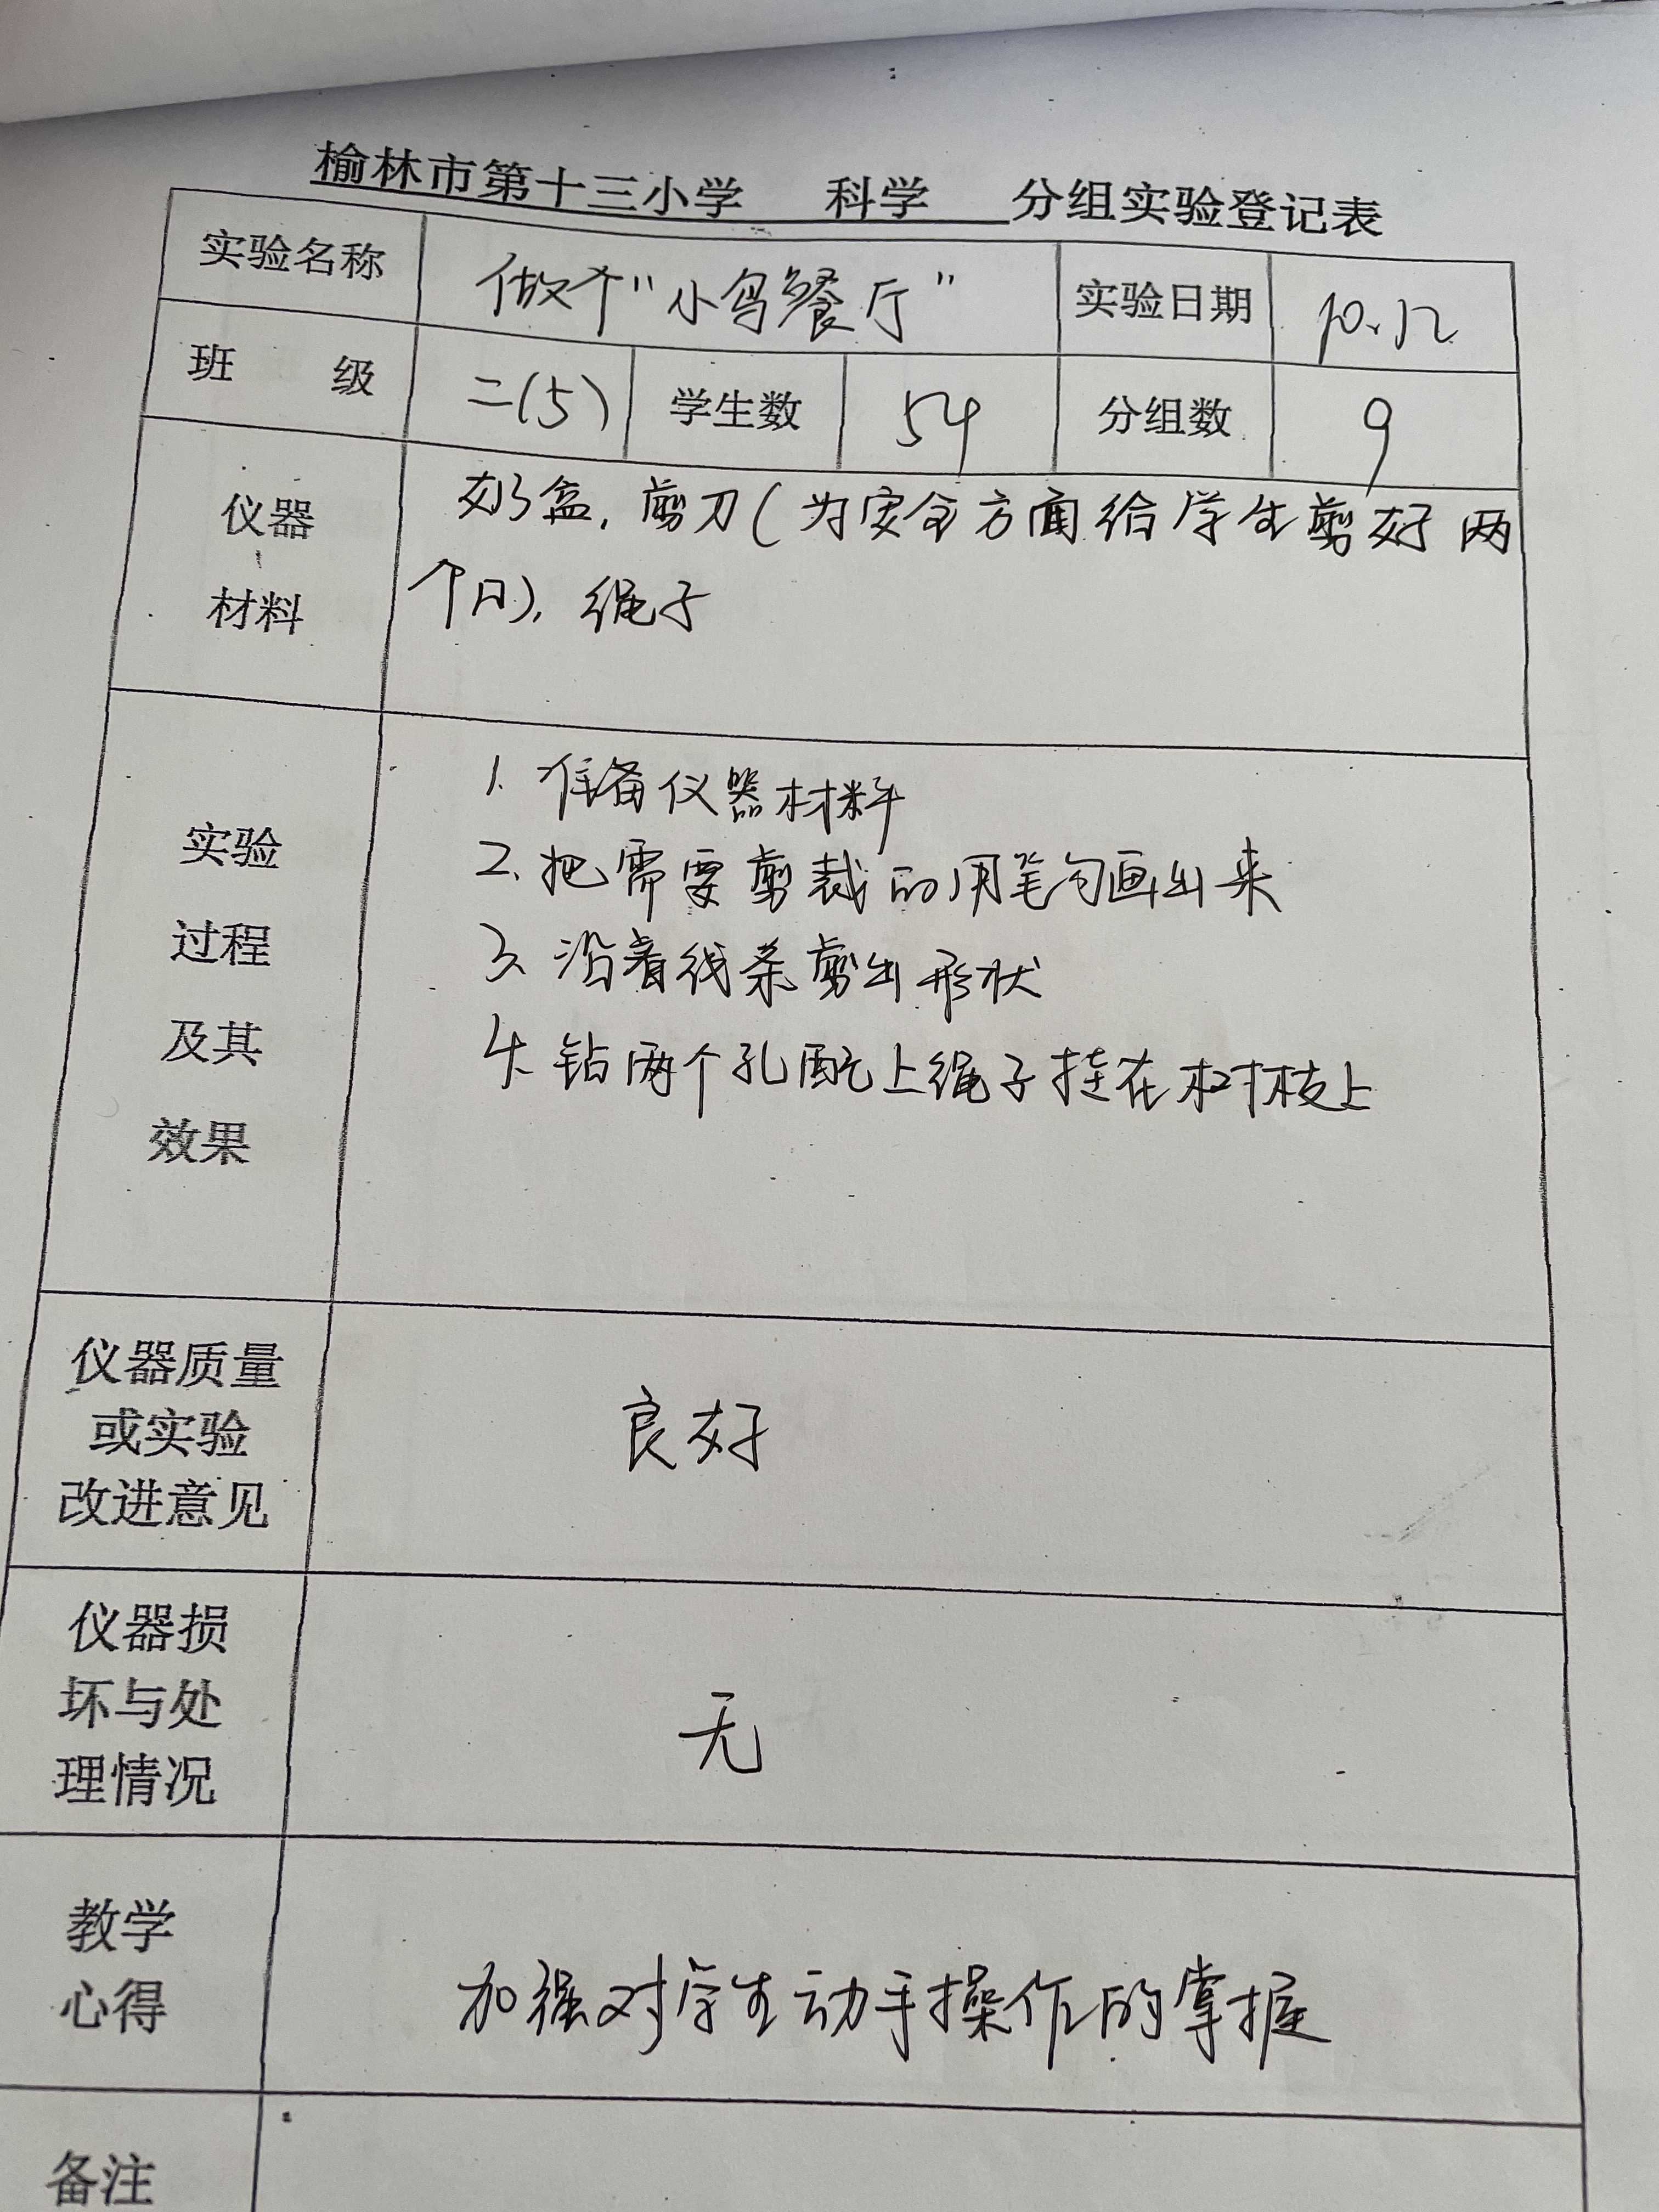 榆林市第十三小学 科学 分组实验登记表
实验名称 做个“小鸟餐厅” 实验日期 10.12
班 级 二(5) 学生数 54 分组数 9
仪器
材料
奶盒,剪刀(为安全方面给学生剪好两
个口),绳子
实验
过程
及其
效果
1. 准备仪器材料
2、把需要剪裁的用笔勾画出来
3、沿着线条剪出形状
4、钻两个孔配上绳子挂在树枝上
仪器质量
或实验
改进意见
良好
仪器损
坏与处
理情况
无
教学
心得
加强对学生动手操作的掌握
备注